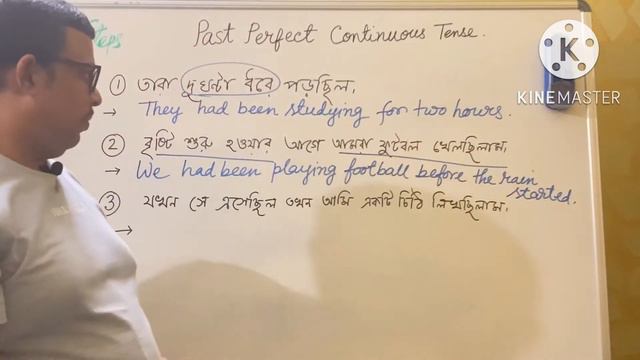 Steps
Past Perfect Continuous Tense.
① তারা দুঘন্টা ধরে পড়ছিল।
→ They had been studying for two hours.
② বৃষ্টি শুরু হওয়ার আগে আমরা ফুটবল খেলছিলাম।
→ We had been playing football before the rain started.
③ যখন সে এসেছিল তখন আমি একটি চিঠি লিখছিলাম।
→
K
KINEMASTER